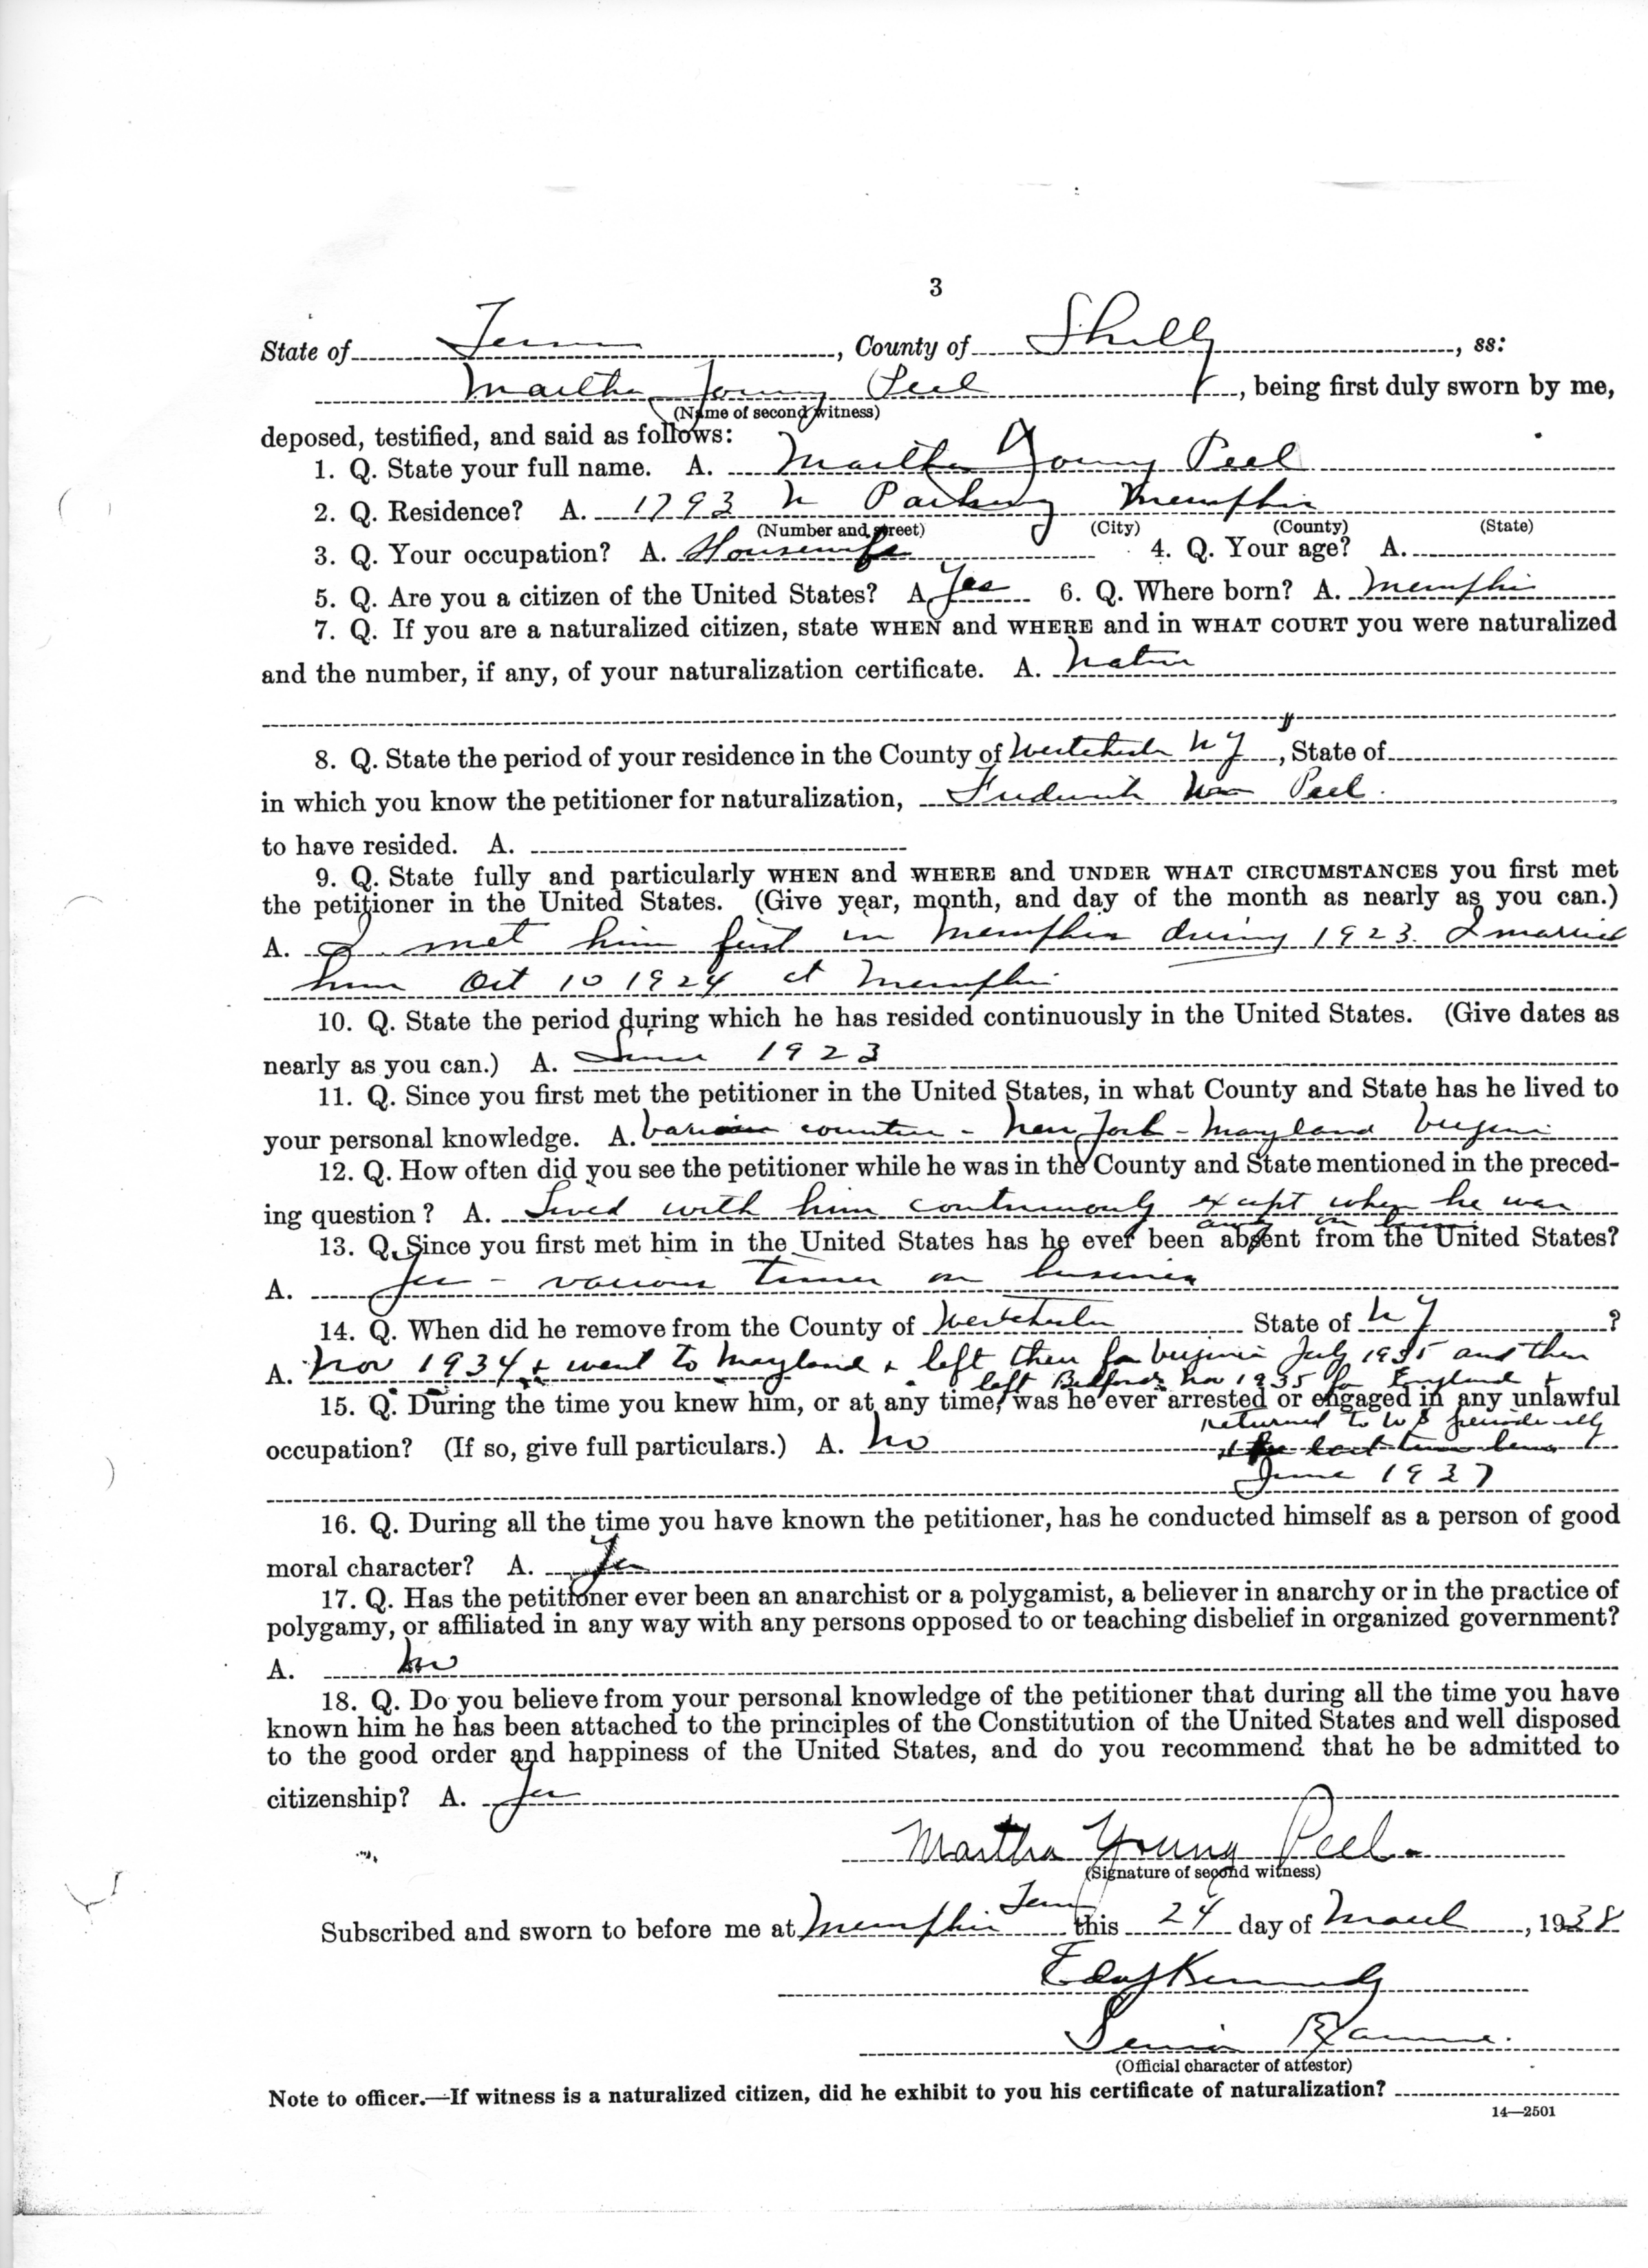 3
State of Tenn, County of Shelby, ss:
Martha Young Peel, being first duly sworn by me,
(Name of second witness)
deposed, testified, and said as follows:
1. Q. State your full name. A. Martha Young Peel
2. Q. Residence? A. 1793 N Parkway Memphis
(Number and street) (City) (County) (State)
3. Q. Your occupation? A. Housewife 4. Q. Your age? A.
5. Q. Are you a citizen of the United States? A. Yes 6. Q. Where born? A. Memphis
7. Q. If you are a naturalized citizen, state WHEN and WHERE and in WHAT COURT you were naturalized
and the number, if any, of your naturalization certificate. A. Native
8. Q. State the period of your residence in the County of Westchester N Y, State of
in which you know the petitioner for naturalization, Frederick Peel.
to have resided. A.
9. Q. State fully and particularly WHEN and WHERE and UNDER WHAT CIRCUMSTANCES you first met
the petitioner in the United States. (Give year, month, and day of the month as nearly as you can.)
A. I met him first in Memphis during 1923. I married
him Oct 10 1924 at Memphis
10. Q. State the period during which he has resided continuously in the United States. (Give dates as
nearly as you can.) A. Since 1923
11. Q. Since you first met the petitioner in the United States, in what County and State has he lived to
your personal knowledge. A. Various counties - New York - Maryland Virginia
12. Q. How often did you see the petitioner while he was in the County and State mentioned in the preced-
ing question? A. Lived with him continuously except when he was
away on business
13. Q. Since you first met him in the United States has he ever been absent from the United States?
A. Yes - various times on business
14. Q. When did he remove from the County of Westchester State of N Y?
A. Nov 1934 + went to Maryland + left then for Virginia July 1935 and then
left Nov 1935 for England +
15. Q. During the time you knew him, or at any time, was he ever arrested or engaged in any unlawful
returned to US periodically
occupation? (If so, give full particulars.) A. No
the last time being
June 1937
16. Q. During all the time you have known the petitioner, has he conducted himself as a person of good
moral character? A. Yes
17. Q. Has the petitioner ever been an anarchist or a polygamist, a believer in anarchy or in the practice of
polygamy, or affiliated in any way with any persons opposed to or teaching disbelief in organized government?
A. No
18. Q. Do you believe from your personal knowledge of the petitioner that during all the time you have
known him he has been attached to the principles of the Constitution of the United States and well disposed
to the good order and happiness of the United States, and do you recommend that he be admitted to
citizenship? A. Yes
Martha Young Peel.
(Signature of second witness)
Subscribed and sworn to before me at Memphis Tenn this 24 day of March, 1938
Kennedy
Senior Examiner.
(Official character of attestor)
Note to officer.—If witness is a naturalized citizen, did he exhibit to you his certificate of naturalization?
14—2501